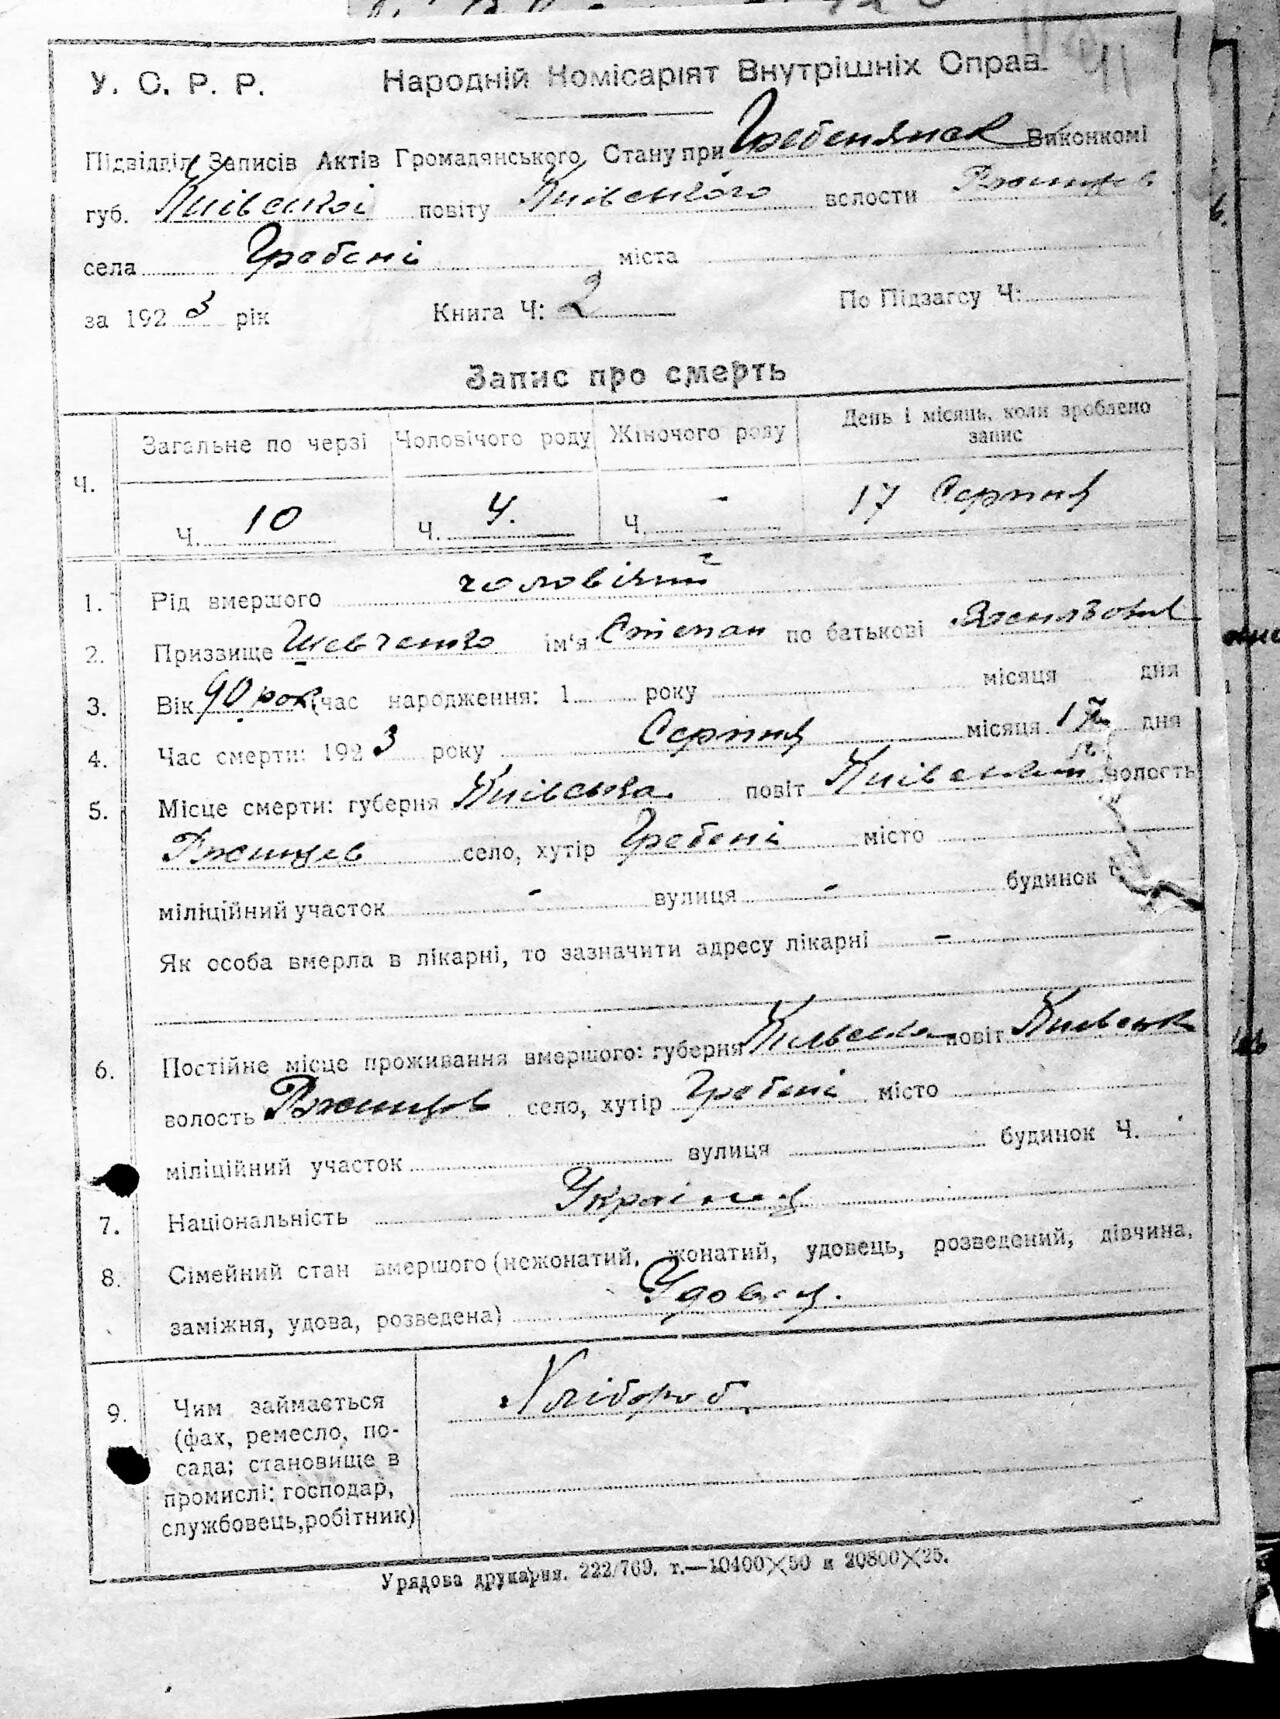 41
У. С. Р. Р. Народній Комісаріят Внутрішніх Справ.
Підвідділ Записів Актів Громадянського Стану при Гребенянск Виконкомі
губ. Київської повіту Київського волости Ржищев
села Гребені міста
за 1923 рік Книга Ч: 2 По Підзагсу Ч:
Запис про смерть
Ч. Загальне по черзі Чоловічого роду Жіночого роду День і місяць, коли зроблено запис
Ч. 10 Ч. 4. Ч. - 17 Серпня
1. Рід вмершого чоловічий
2. Призвище Шевченко ім'я Степан по батькові
3. Вік 90 рок. час народження: 1 року місяця дня
4. Час смерти: 1923 року Серпня місяця 17 дня
5. Місце смерти: губерня Київська повіт Київський волость
Ржищев село, хутір Гребені місто
міліційний участок - вулиця - будинок
Як особа вмерла в лікарні, то зазначити адресу лікарні -
6. Постійне місце проживання вмершого: губерня Київська повіт Київськ
волость Ржищев село, хутір Гребені місто
міліційний участок вулиця будинок Ч.
7. Національність Українец
8. Сімейний стан вмершого (нежонатий, жонатий, удовець, розведений, дівчина,
заміжня, удова, розведена) Удовец.
9. Чим займається Хлібороб.
(фах, ремесло, по-
сада; становище в
промислі: господар,
службовець, робітник)
Урядова друкарня. 222/769. т.—10400×50 и 20800×25.